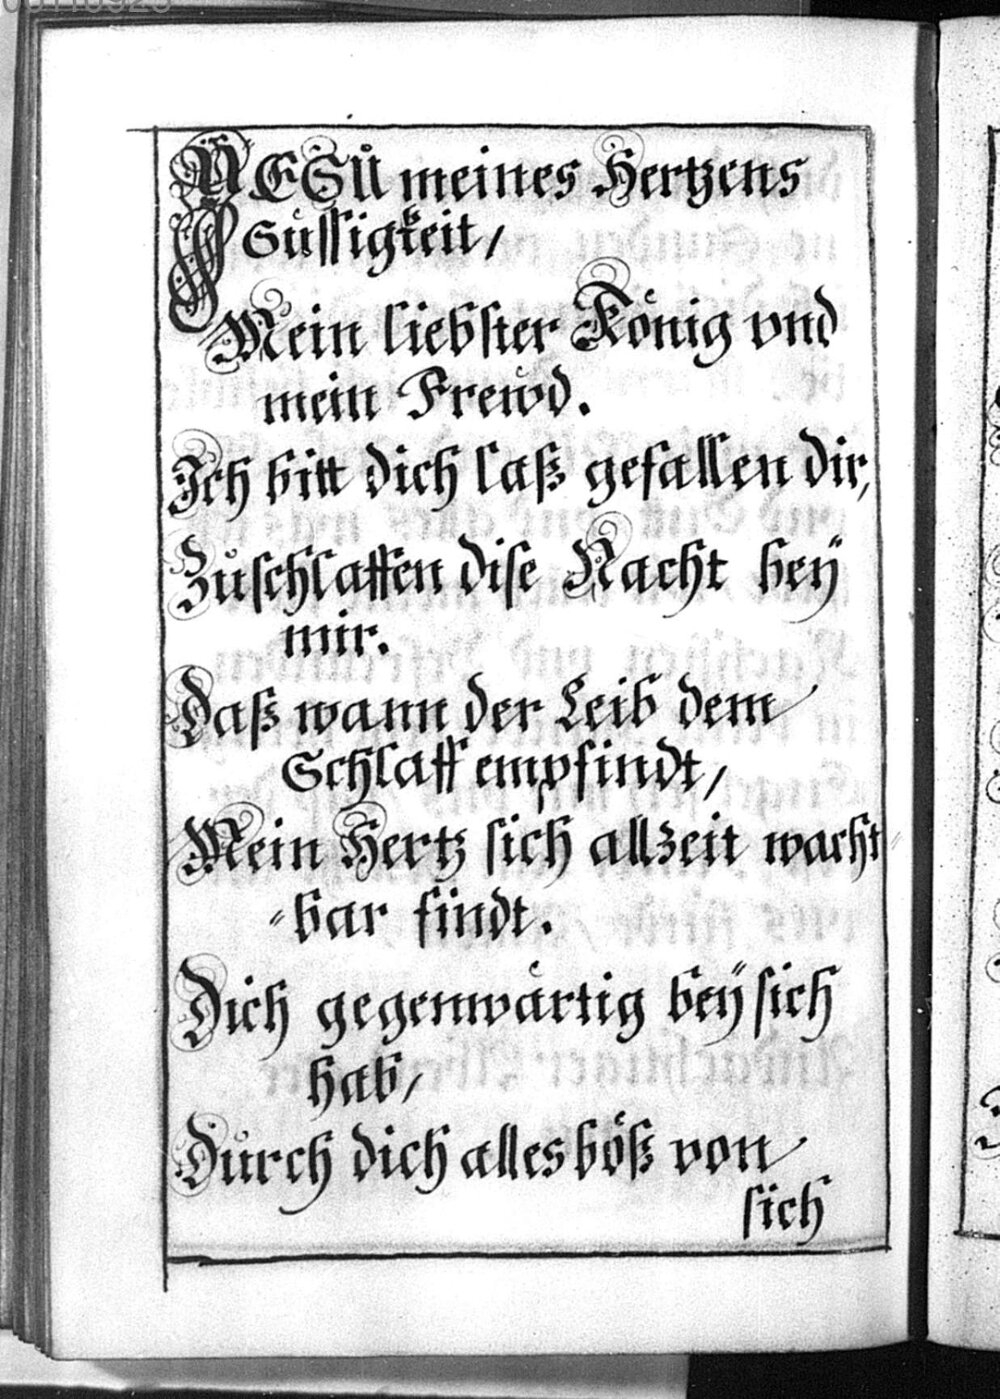 JESU meines Hertzens
Süssigkeit /
Mein liebster König vnd
mein Frewd.
Ich bitt dich laß gefallen dir,
Zuschlaffen dise Nacht beÿ
mir.
Daß wann der Leib dem
Schlaff empfindt /
Mein Hertz sich allzeit wacht
-bar findt.
Dich gegenwärtig beÿ sich
hab /
Durch dich alles böß von
sich